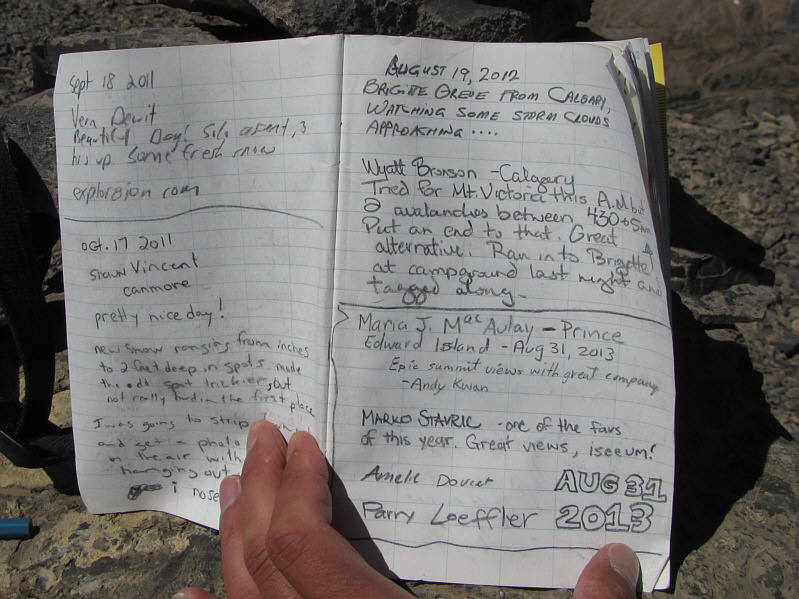 Sept 18 2011
Vern Dewit
Beautiful Day! Solo ascent, 3
hrs up some fresh snow
explor8ion com
oct. 17 2011
Shawn Vincent
canmore
pretty nice day!
new snow ranging from inches
to 2 feet deep in spots made
the odd spot trickier, but
not really hard in the first place
I was going to strip
and get a photo
in the air with
hanging out
i nose
AUGUST 19, 2012
BRIGITE GREVE FROM CALGARY,
WATCHING SOME STORM CLOUDS
APPROACHING ....
Wyatt Bronson - Calagary
Tried for Mt. Victoria this A.M but
2 avalanches between 430 + 5am
Put an end to that. Great
alternative. Ran in to Brigette
at campground last night and
tagged along -
Maria J. MacAulay - Prince
Edward Island - Aug 31, 2013
Epic summit views with great company
- Andy Kwan
MARKO STAVRIC - one of the favs
of this year. Great views, iseeum!
Amelie Doucet AUG 31
Parry Loeffler 2013